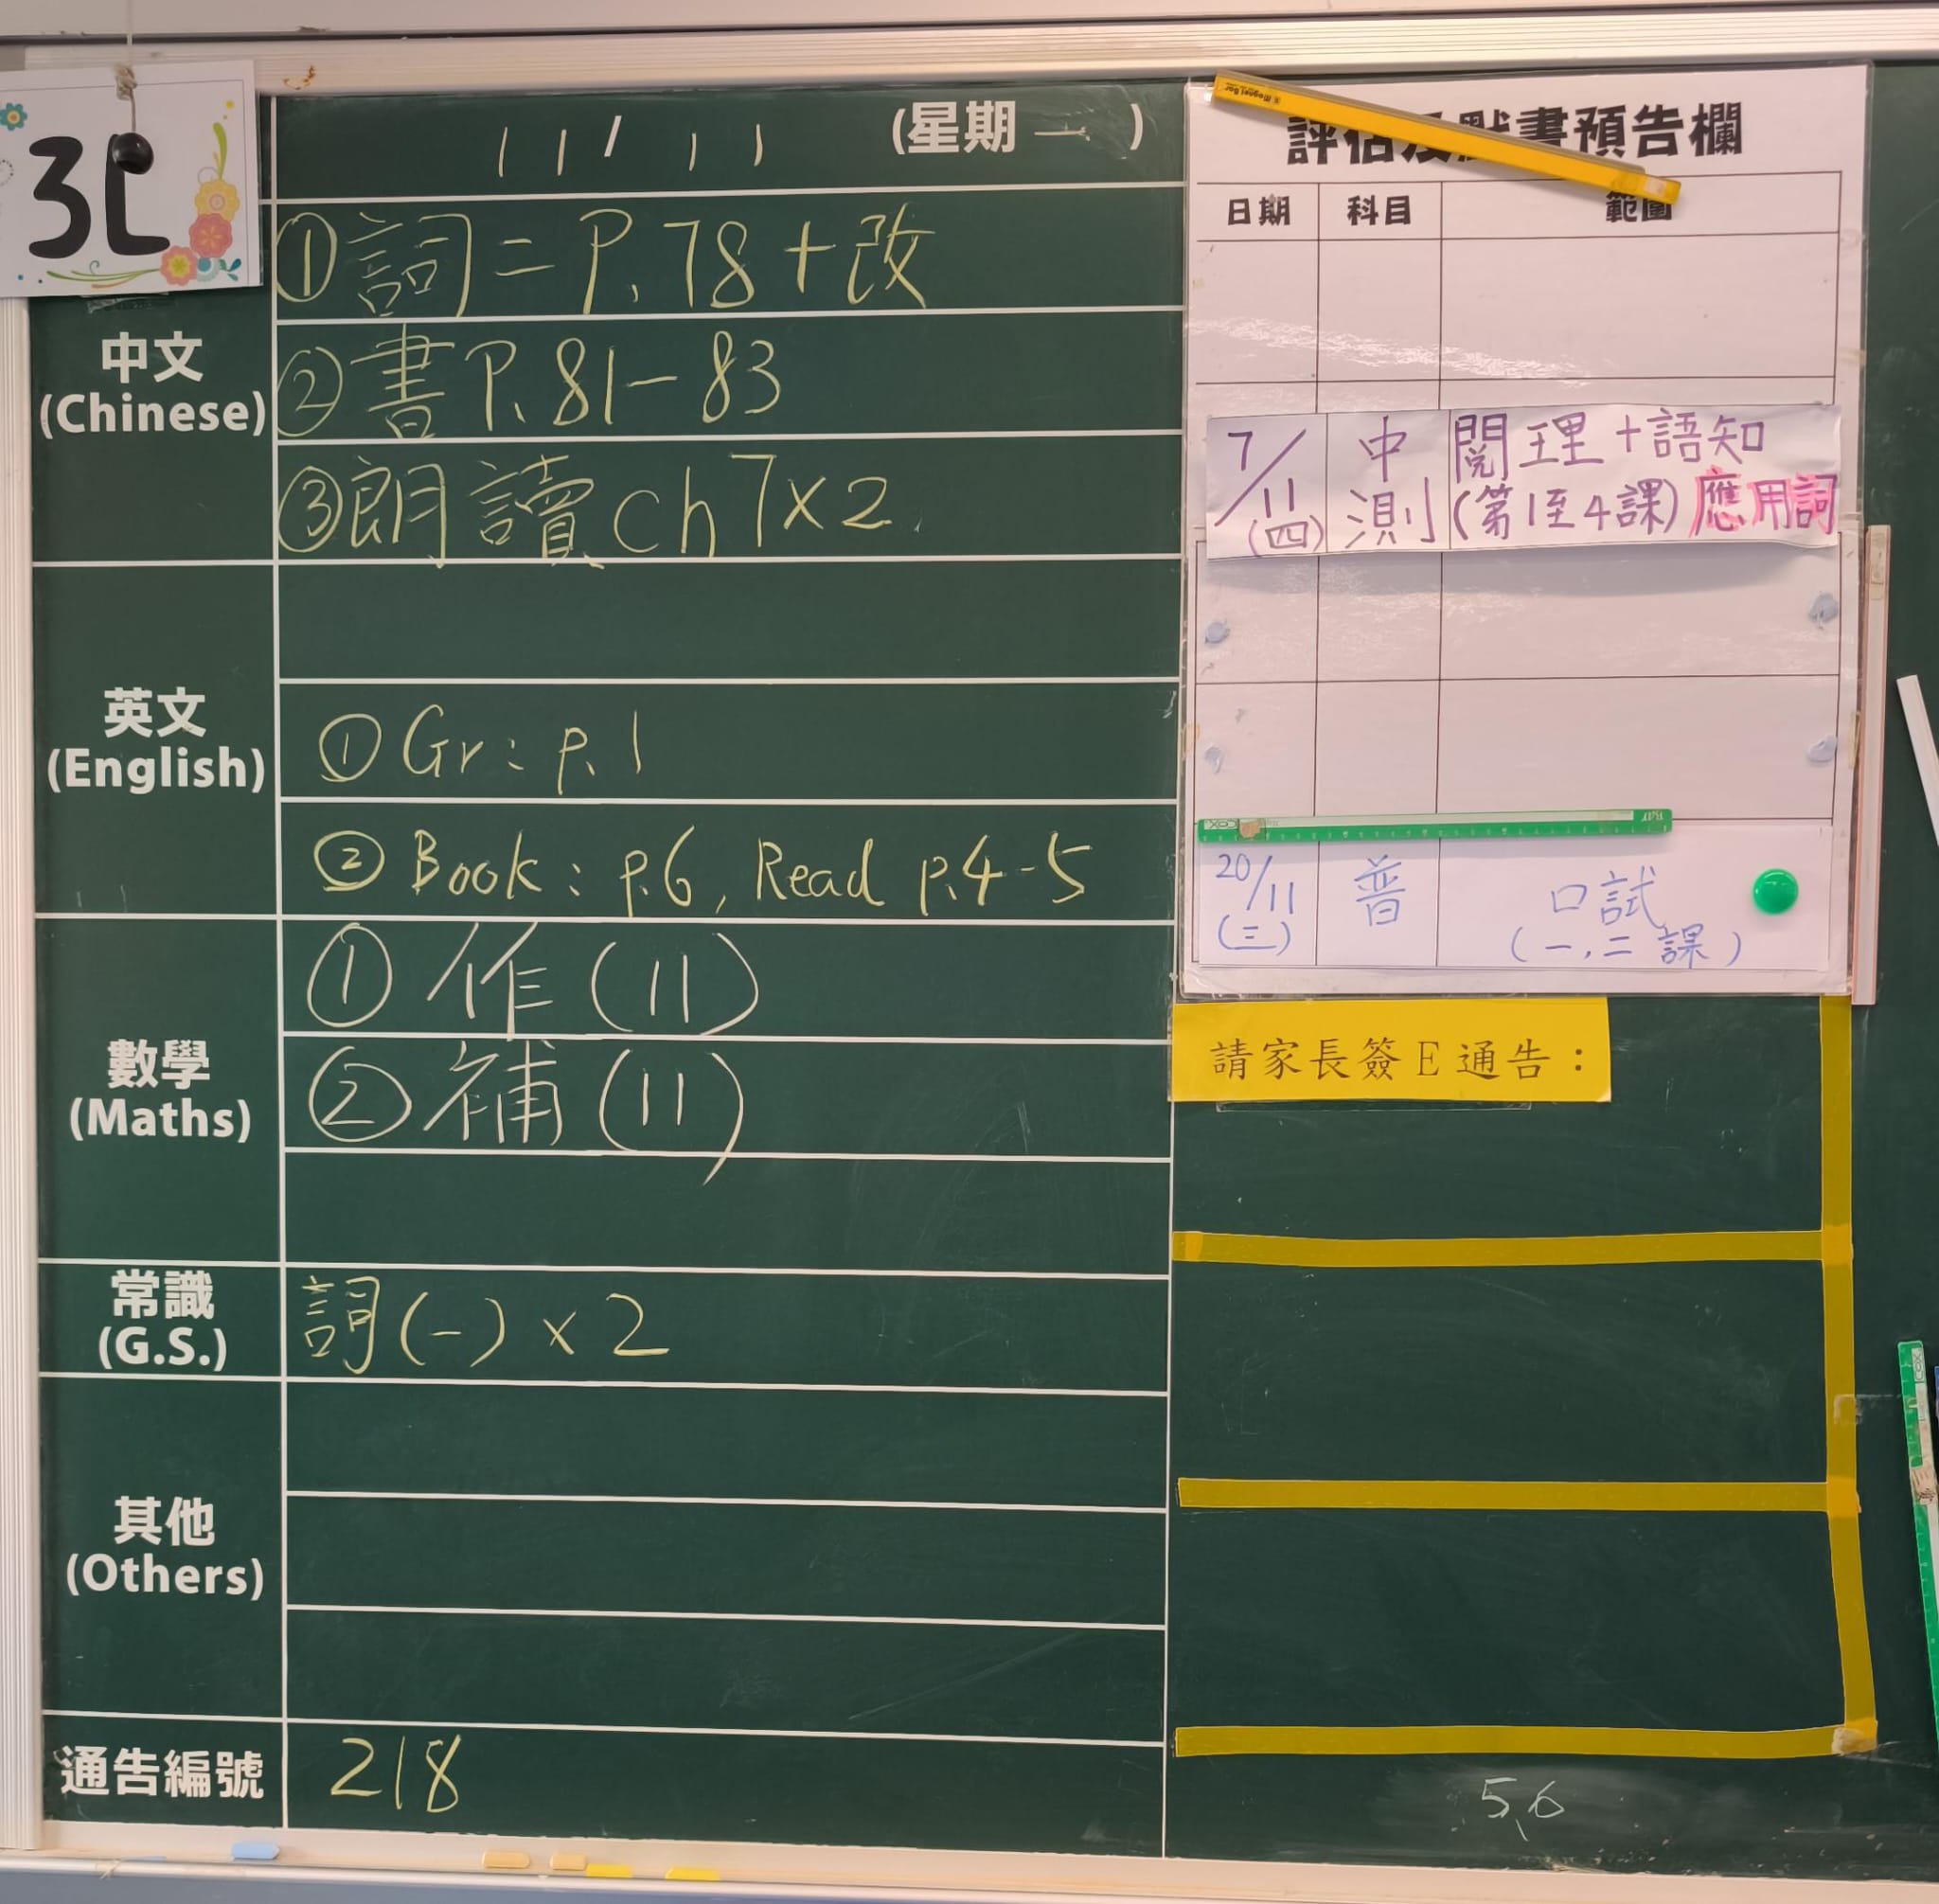 3C
11/11 (星期一)
中文
(Chinese)
①詞二P.78+改
②書P.81-83
③朗讀ch7x2
英文
(English)
①Gr: p.1
②Book: p.6, Read p.4-5
數學
(Maths)
①作(11)
②補(11)
常識
(G.S.)
詞(一)x2
其他
(Others)
通告編號
218
評估及默書預告欄
日期 科目 範圍
7/11 (四) 中測 閱理+語知
(第1至4課) 應用詞
20/11 (三) 普 口試
(一,二課)
請家長簽E通告:
5,6